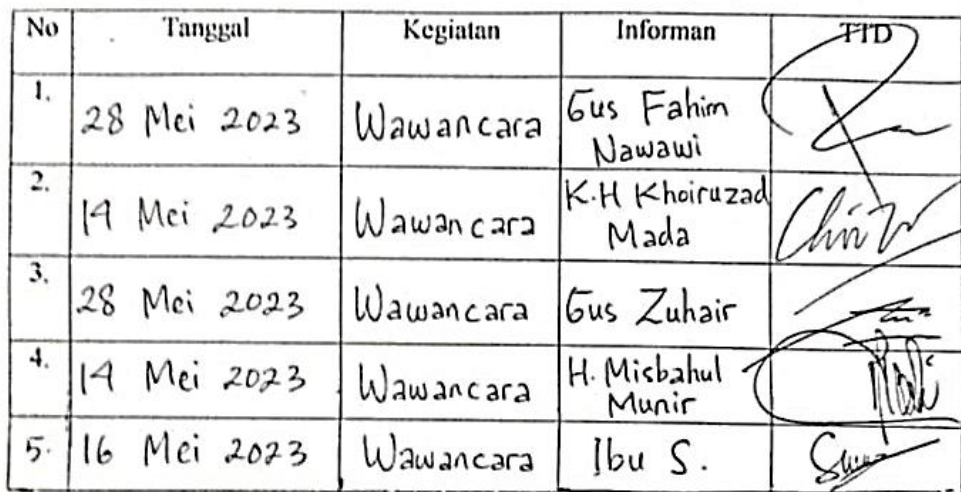 No Tanggal Kegiatan Informan TTD
1. 28 Mei 2023 Wawancara Gus Fahim
Nawawi
2. 14 Mei 2023 Wawancara K.H Khoiruzad
Mada
3. 28 Mei 2023 Wawancara Gus Zuhair
4. 14 Mei 2023 Wawancara H. Misbahul
Munir
5. 16 Mei 2023 Wawancara Ibu S.